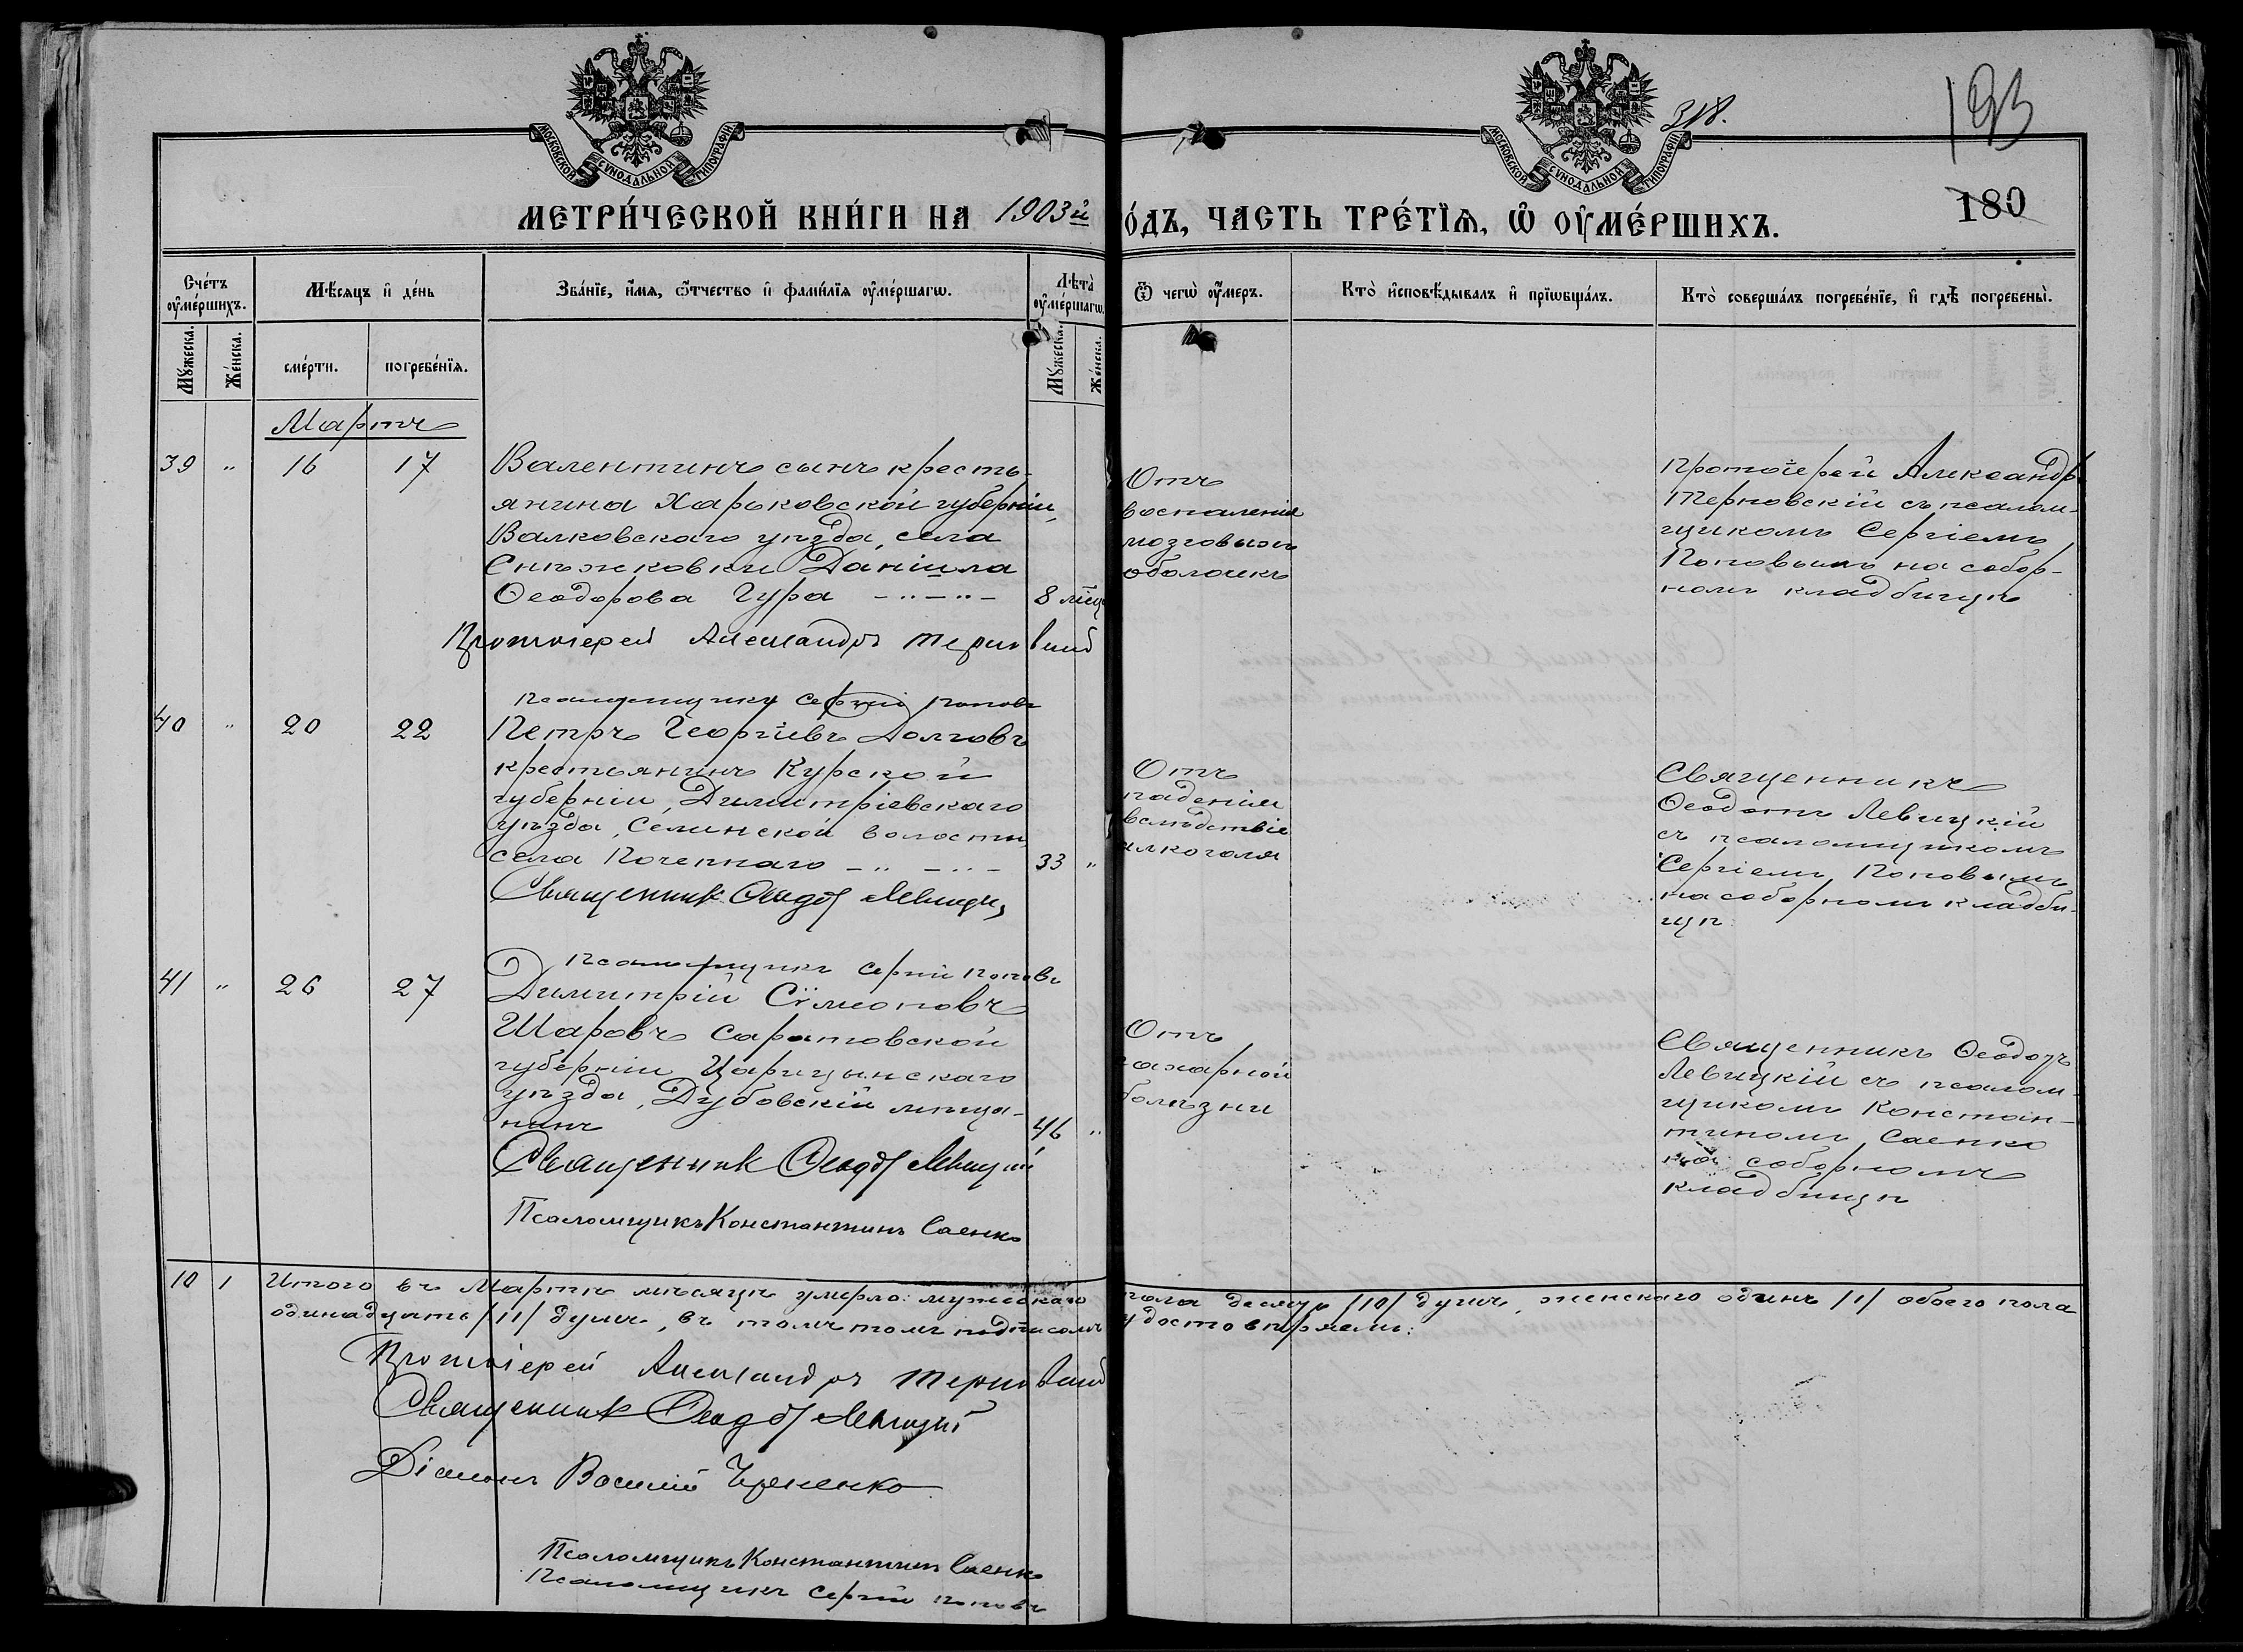 МОСКОВСКОЙ СѴНОДАЛЬНОЙ ТИПОГРАФІИ.
МОСКОВСКОЙ СѴНОДАЛЬНОЙ ТИПОГРАФІИ.
318.
193
180
МЕТРИ́ЧЕСКОЙ КНИ́ГИ НА 1903й
О́ДЪ, ЧАСТЬ ТРЕ́ТЇѦ, Ѡ҆ ОУ҆МЕ́РШИХЪ.
Сче́тъ оу҆ме́ршихъ.
Мѣ́сяцъ и҆ де́нь
Зва́нїе, и҆́мя, ѻ҆́тчество и҆ фами́лїя оу҆ме́ршагѡ.
Лѣта̀ оу҆ме́ршагѡ.
Ѿ чегѡ̀ оу҆́меръ.
Кто̀ и҆сповѣ́дывалъ и҆ прїѡбща́лъ.
Кто̀ соверша́лъ погребе́нїе, и҆ гдѣ̀ погребены̀.
Мꙋ́жеска.
Же́нска.
сме́рти.
погребе́нїя.
Мꙋ́жеска.
Же́нска.
Мартъ
39 " 16 17 Валентинъ сынъ кресть-
янина Харьковской губерніи,
Валковскаго уѣзда, села
Снѣжковки Даніила
Ѳеодорова Гура – " – " – 8 мѣсц
Протоіерей Александръ Терновскій
Псаломщикъ Сергій Поповъ
Отъ
воспаленія
мозговыхъ
оболочекъ
Протоіерей Александръ
Терновскій съ псалом-
щикомъ Сергіемъ
Поповымъ на собор-
номъ кладбищѣ
40 " 20 22 Петръ Георгіевъ Долговъ
крестьянинъ Курской
губерніи, Димитріевскаго
уѣзда, Селинской волости,
села Почепнаго – " – " – 33 "
Священникъ Ѳеодотъ Левицкій
Псаломщикъ Сергій Поповъ
Отъ
паденія
вслѣдствіе
алкоголя
Священникъ
Ѳеодотъ Левицкій
съ псаломщикомъ
Сергіемъ Поповымъ
на соборномъ кладби-
щѣ.
41 " 26 27 Димитрій Сѵмеоновъ
Шаровъ Саратовской
губерніи Царицынскаго
уѣзда, Дубовскій мѣща-
нинъ 46 "
Священникъ Ѳеодотъ Левицкій
Псаломщикъ Константинъ Саенко
Отъ
сахарной
болѣзни
Священникъ Ѳеодотъ
Левицкій съ псалом-
щикомъ Констан-
тиномъ Саенко
на соборномъ
кладбищѣ
10 1 Итого въ Мартѣ мѣсяцѣ умерло: мужескаго пола десять /10/ душъ, женскаго одинъ /1/ обоего пола
одинадцать /11/ душъ, въ томъ подписомъ удостовѣряемъ:
Протоіерей Александръ Терновскій
Священникъ Ѳеодотъ Левицкій
Діаконъ Василій
Псаломщикъ Константинъ Саенко
Псаломщикъ Сергій Поповъ